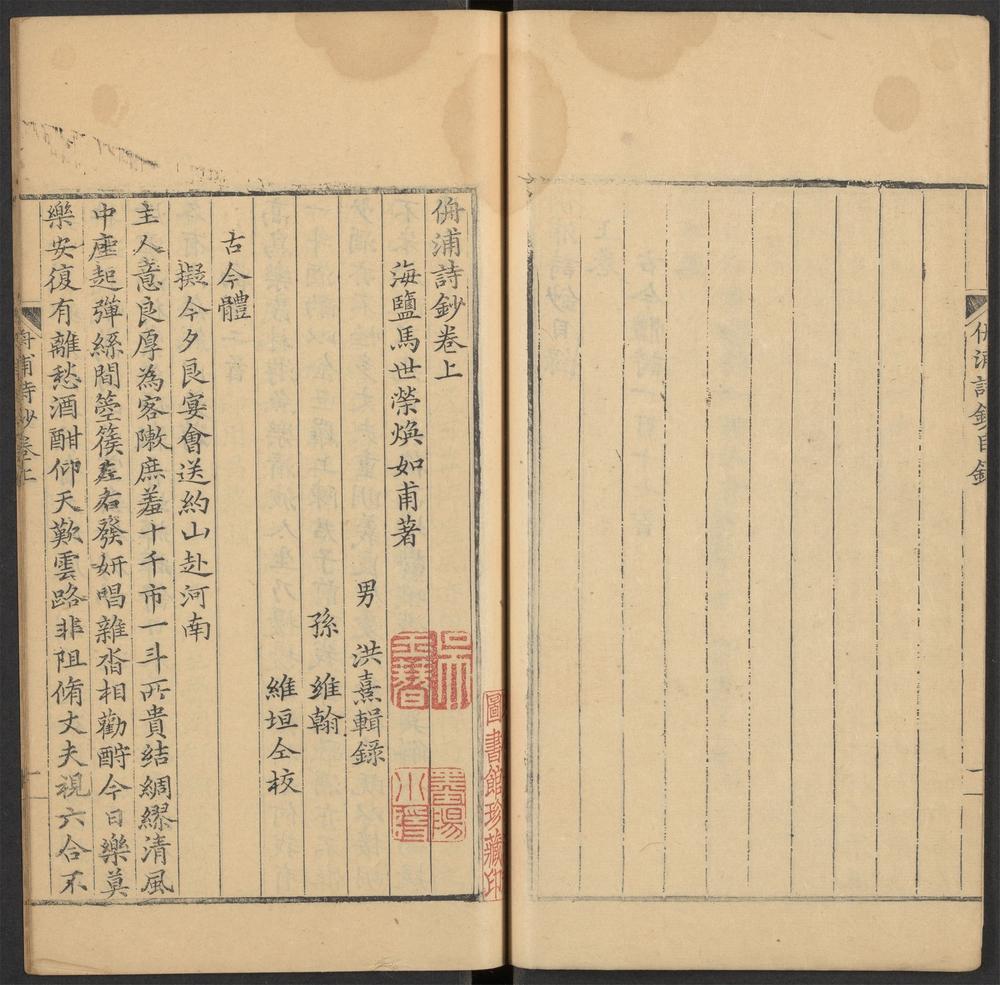 侑浦詩鈔目錄
二
圖書館珍藏印
侑浦詩鈔卷上
海鹽馬世榮煥如甫著
男 洪熹輯錄
孫 維翰
維垣仝校
古今體
擬今夕良宴會送約山赴河南
主人意良厚為客陳庶羞十千市一斗所貴結綢繆清風
中座起彈絲間箜篌左右發妍唱雜沓相勸酧今日樂莫
樂安復有離愁酒酣仰天歎雲路非阻脩丈夫視六合不
侑浦詩鈔卷上
一